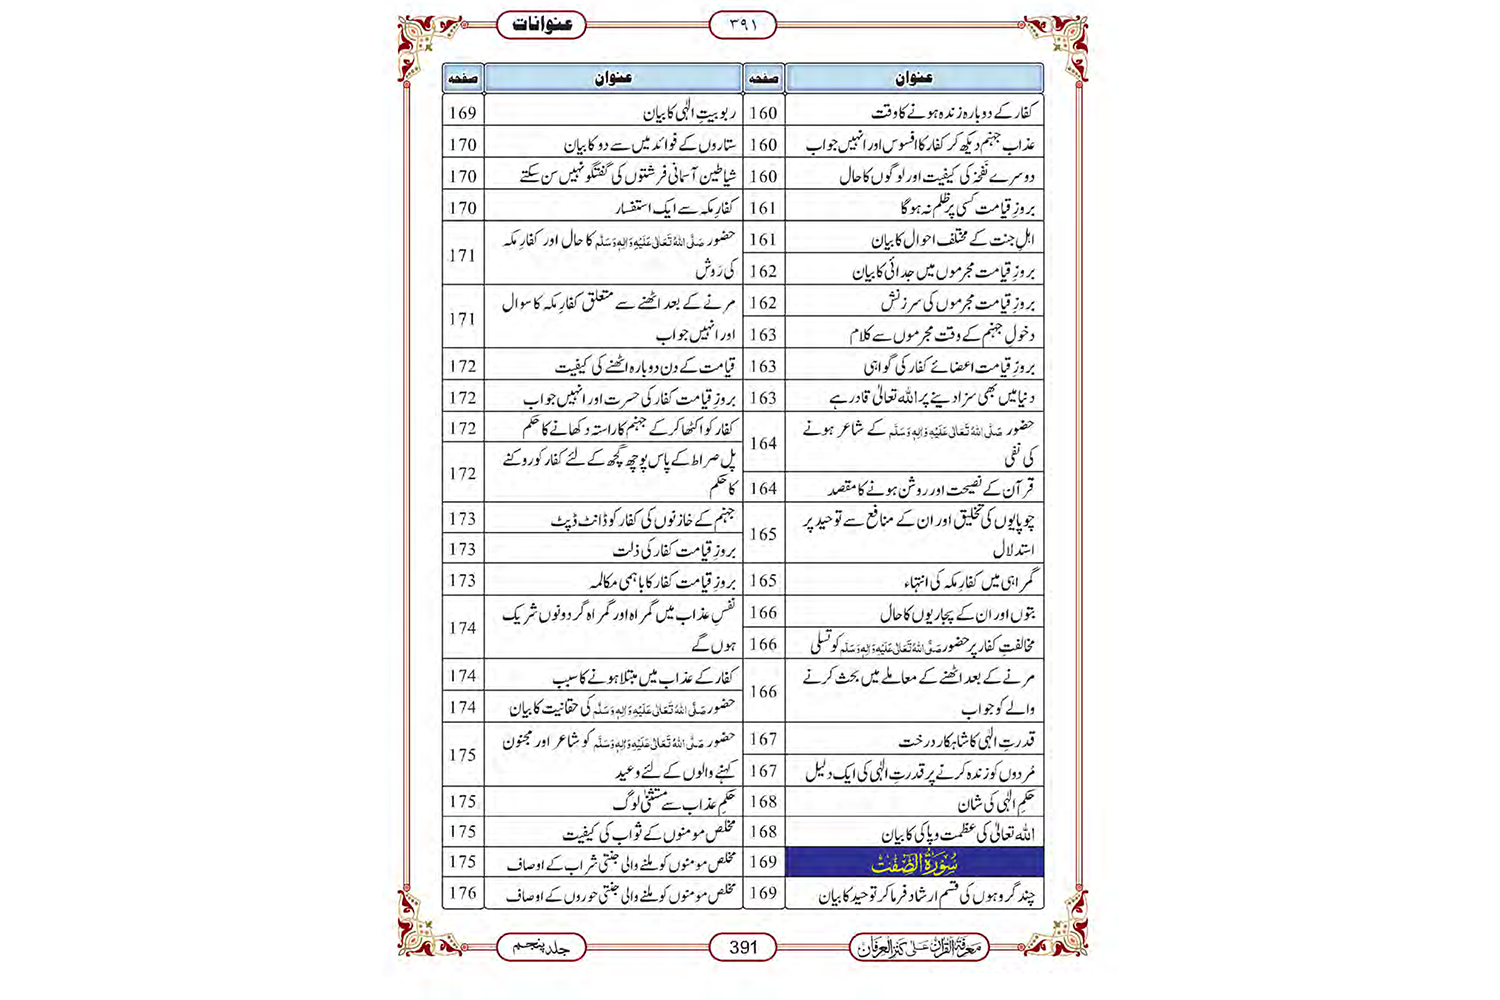 عنوانات
۳۹۱
عنوان صفحہ
کفار کے دوبارہ زندہ ہونے کا وقت 160
عذابِ جہنم دیکھ کر کفار کا افسوس اور انہیں جواب 160
دوسرے نَفخہ کی کیفیت اور لوگوں کا حال 160
بروزِ قیامت کسی پر ظلم نہ ہوگا 161
اہلِ جنت کے مختلف احوال کا بیان 161
بروزِ قیامت مجرموں میں جدائی کا بیان 162
بروزِ قیامت مجرموں کی سرزنش 162
دخولِ جہنم کے وقت مجرموں سے کلام 163
بروزِ قیامت اعضائے کفار کی گواہی 163
دنیا میں بھی سزا دینے پر اللہ تعالیٰ قادر ہے 163
حضور صَلَّی اللہُ تَعَالٰی عَلَیْہِ وَاٰلِہٖ وَسَلَّم کے شاعر ہونے
کی نفی 164
قرآن کے نصیحت اور روشن ہونے کا مقصد 164
چوپایوں کی تخلیق اور ان کے منافع سے توحید پر
استدلال 165
گمراہی میں کفارِ مکہ کی انتہاء 165
بتوں اور ان کے پجاریوں کا حال 166
مخالفتِ کفار پر حضور صَلَّی اللہُ تَعَالٰی عَلَیْہِ وَاٰلِہٖ وَسَلَّم کو تسلی 166
مرنے کے بعد اٹھنے کے معاملے میں بحث کرنے
والے کو جواب 166
قدرتِ الٰہی کا شاہکار درخت 167
مُردوں کو زندہ کرنے پر قدرتِ الٰہی کی ایک دلیل 167
حکمِ الٰہی کی شان 168
اللہ تعالیٰ کی عظمت و پاکی کا بیان 168
سُوْرَۃُ الصّٰٓفّٰت 169
چند گروہوں کی قسم ارشاد فرما کر توحید کا بیان 169
عنوان صفحہ
ربوبیتِ الٰہی کا بیان 169
ستاروں کے فوائد میں سے دو کا بیان 170
شیاطین آسمانی فرشتوں کی گفتگو نہیں سن سکتے 170
کفارِ مکہ سے ایک استفسار 170
حضور صَلَّی اللہُ تَعَالٰی عَلَیْہِ وَاٰلِہٖ وَسَلَّم کا حال اور کفارِ مکہ
کی رَوِش 171
مرنے کے بعد اٹھنے سے متعلق کفارِ مکہ کا سوال
اور انہیں جواب 171
قیامت کے دن دوبارہ اٹھنے کی کیفیت 172
بروزِ قیامت کفار کی حسرت اور انہیں جواب 172
کفار کو اکٹھا کر کے جہنم کا راستہ دکھانے کا حکم 172
پل صراط کے پاس پوچھ گچھ کے لئے کفار کو روکنے
کا حکم 172
جہنم کے خازنوں کی کفار کو ڈانٹ ڈپٹ 173
بروزِ قیامت کفار کی ذلت 173
بروزِ قیامت کفار کا باہمی مکالمہ 173
نفسِ عذاب میں گمراہ اور گمراہ گر دونوں شریک
ہوں گے 174
کفار کے عذاب میں مبتلا ہونے کا سبب 174
حضور صَلَّی اللہُ تَعَالٰی عَلَیْہِ وَاٰلِہٖ وَسَلَّم کی حقانیت کا بیان 174
حضور صَلَّی اللہُ تَعَالٰی عَلَیْہِ وَاٰلِہٖ وَسَلَّم کو شاعر اور مجنون
کہنے والوں کے لئے وعید 175
حکمِ عذاب سے مستثنیٰ لوگ 175
مخلص مومنوں کے ثواب کی کیفیت 175
مخلص مومنوں کو ملنے والی جنتی شراب کے اوصاف 175
مخلص مومنوں کو ملنے والی جنتی حوروں کے اوصاف 176
معرفۃ القرآن علی کنز العرفان
391
جلد پنجم